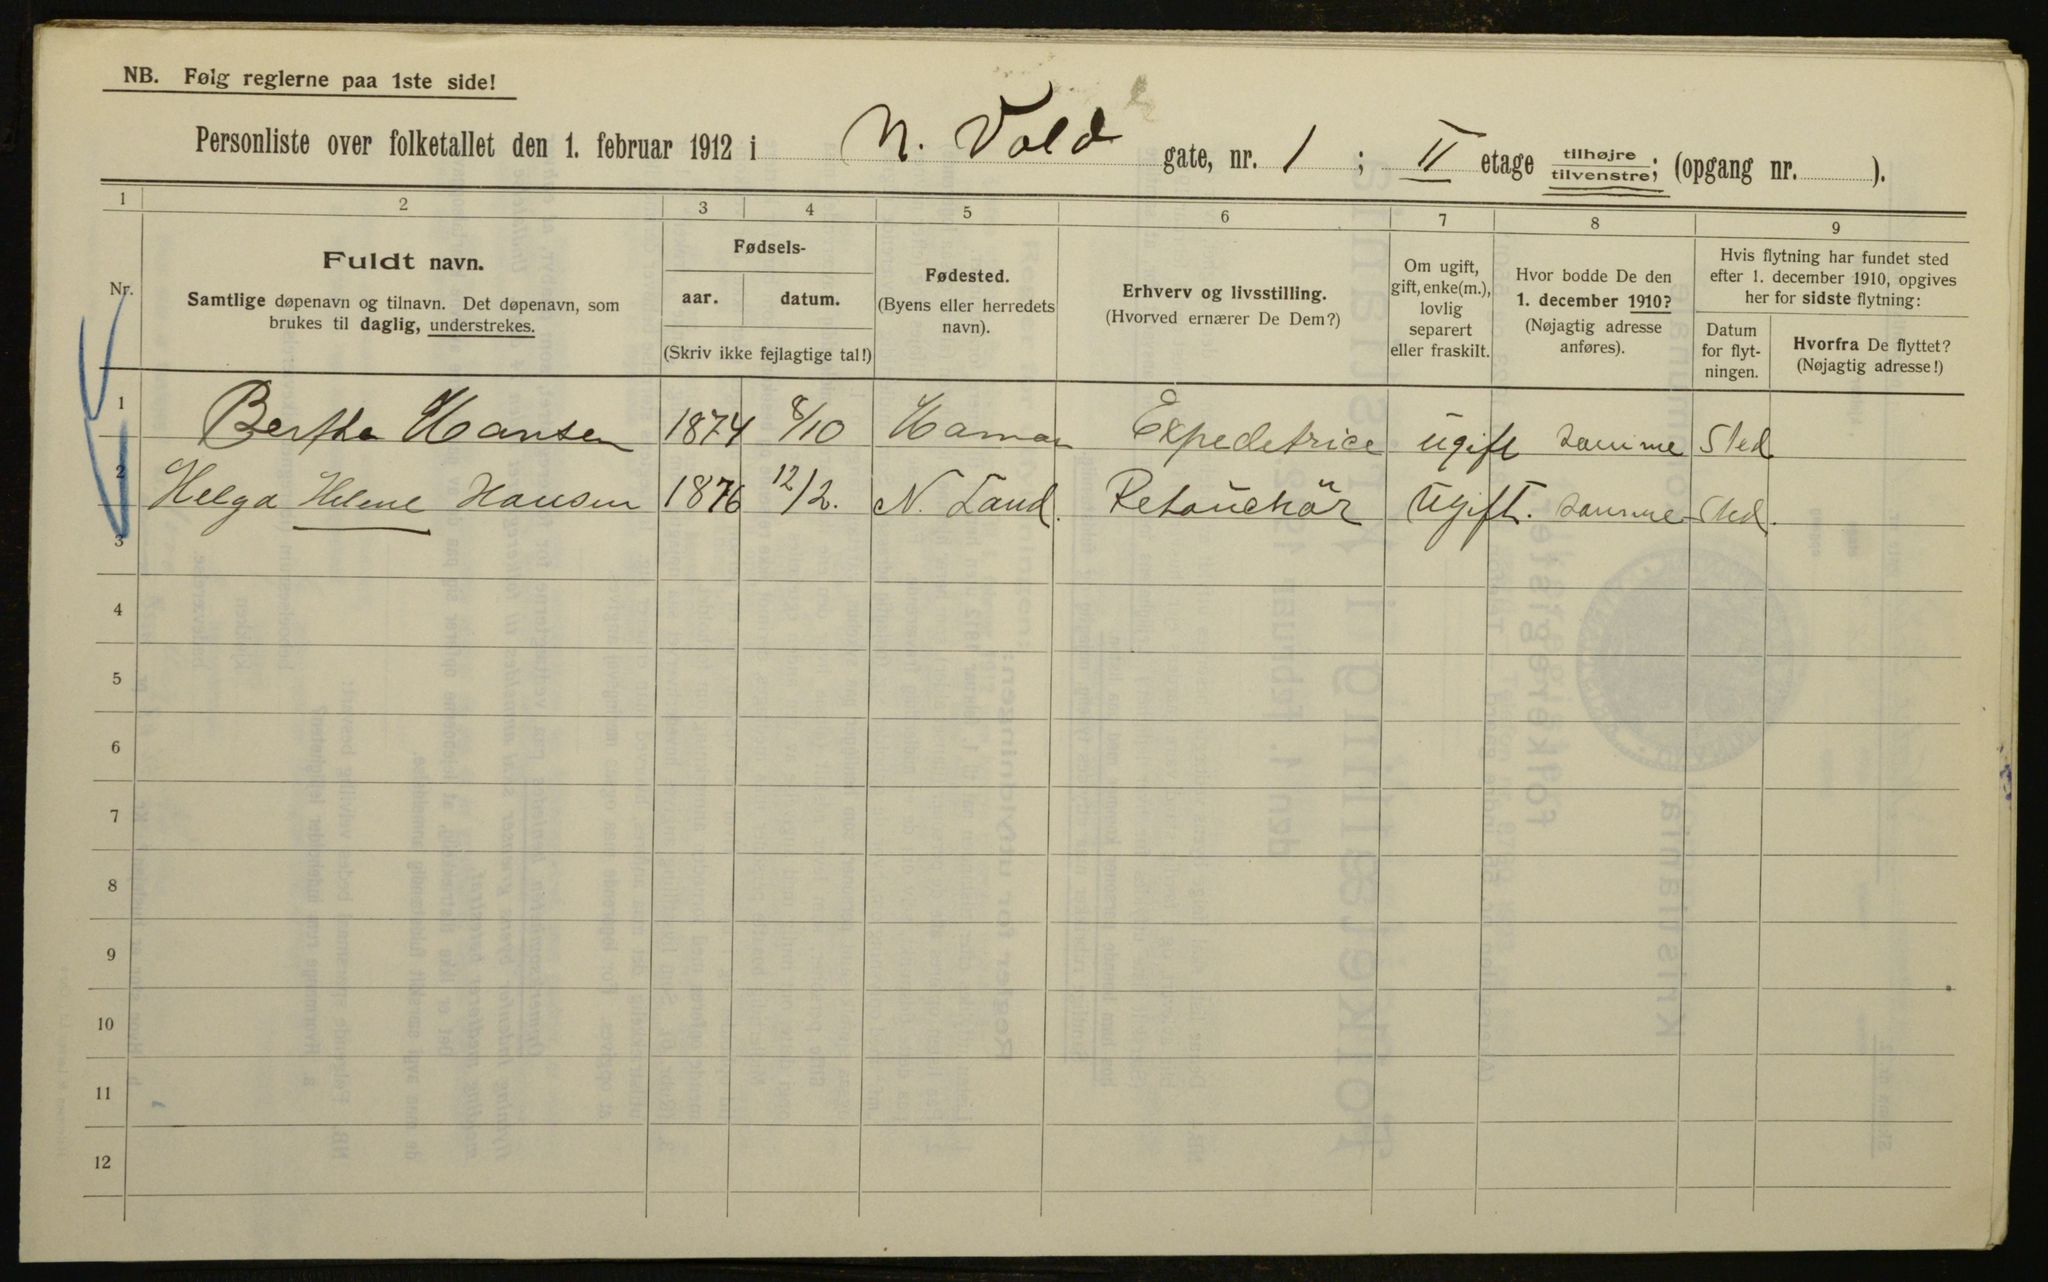 NB. Følg reglerne paa 1ste side!
Personliste over folketallet den 1. februar 1912 i N. Vold gate, nr. 1; II etage tilhøjre tilvenstre; (opgang nr. ).
1 2 3 4 5 6 7 8 9
Nr.
Fuldt navn.
Samtlige døpenavn og tilnavn. Det døpenavn, som
brukes til daglig, understrekes.
Fødsels-
aar. datum.
(Skriv ikke fejlagtige tal!)
Fødested.
(Byens eller herredets
navn).
Erhverv og livsstilling.
(Hvorved ernærer De Dem?)
Om ugift,
gift, enke(m.),
lovlig
separert
eller fraskilt.
Hvor bodde De den
1. december 1910?
(Nøjagtig adresse
anføres).
Hvis flytning har fundet sted
efter 1. december 1910, opgives
her for sidste flytning:
Datum
for flyt-
ningen.
Hvorfra De flyttet?
(Nøjagtig adresse!)
1 Bertha Hansen 1874 8/10 Hamar Expeditrice ugift samme Sted
2 Helga Helene Hansen 1876 12/2. N. Land. Retouchör Ugift. samme Sted.
3
4
5
6
7
8
9
10
11
12